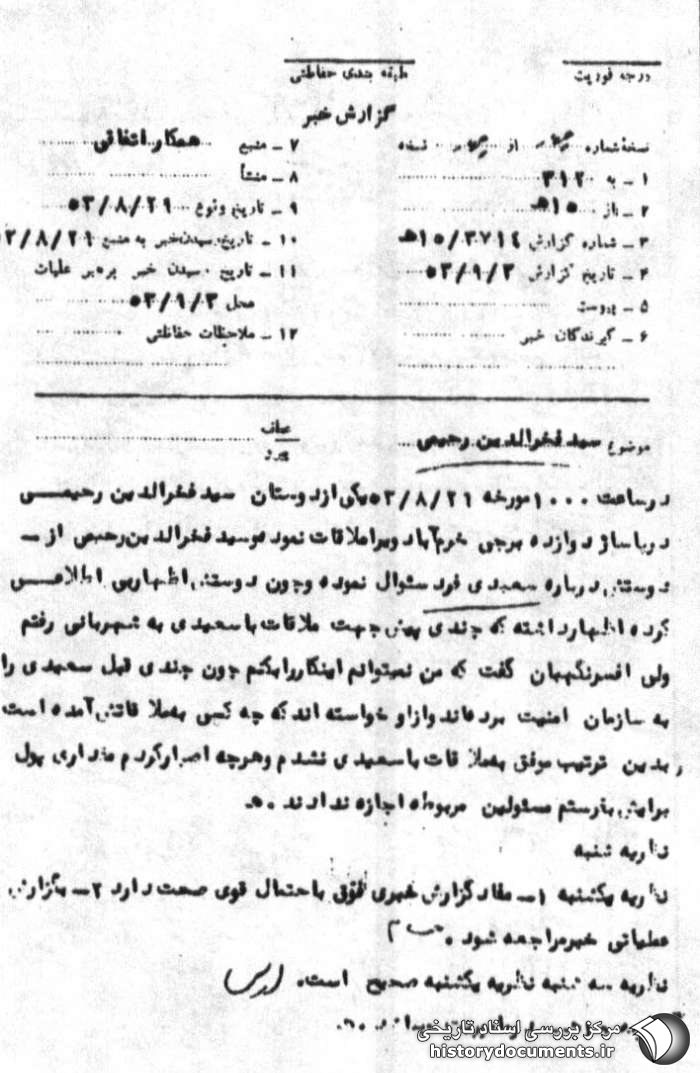 درجه فوریت
طبقه بندی حفاظتی
گزارش خبر
نسخه شماره از نسخه
۱ ـ به ۳۱۲
۲ ـ از ۱۵ ه‍
۳ ـ شماره گزارش ۱۵/۳۷۱۴ ه‍
۴ ـ تاریخ گزارش ۵۳/۹/۳
۵ ـ پیوست
۶ ـ گیرندگان خبر
۷ ـ منبع همکار اتفاقی
۸ ـ منشأ
۹ ـ تاریخ وقوع ۵۳/۸/۲۹
۱۰ ـ تاریخ رسیدن خبر به منبع ۵۳/۸/۲۹
۱۱ ـ تاریخ رسیدن خبر به رهبر عملیات
محل ۵۳/۹/۳
۱۲ ـ ملاحظات حفاظتی
موضوع سید فخرالدین رحیمی
عطف
پیرو
در ساعت ۱۰۰۰ مورخه ۵۳/۸/۲۱ یکی از دوستان سید فخرالدین رحیمی
در پاساژ دوازده برجی خرم‌آباد ویرا ملاقات نموده و سید فخرالدین رحیمی از ـ
دوستش درباره سعیدی فرد سئوال نموده و چون دوستش اظهار بی اطلاعی
کرده اظهار داشته که چندی پیش جهت ملاقات با سعیدی به شهربانی رفتم
ولی افسر نگهبان گفت که من نمیتوانم اینکار را بکنم چون چندی قبل سعیدی را
به سازمان امنیت برده‌اند و از او خواسته اند که چه کسی به ملاقاتش آمده است
و بدین ترتیب موفق به ملاقات با سعیدی نشدم و هرچه اصرار کردم مقداری پول
برایش بفرستم مسئولین مربوطه اجازه ندادند . ه‍
نظریه شنبه
نظریه یکشنبه ۱ـ مفاد گزارش خبری فوق باحتمال قوی صحت دارد ۲ـ بگزارش
عملیاتی خبر مراجعه شود .
نظریه سه شنبه نظریه یکشنبه صحیح است.
مرکز بررسی اسناد تاریخی
historydocuments.ir